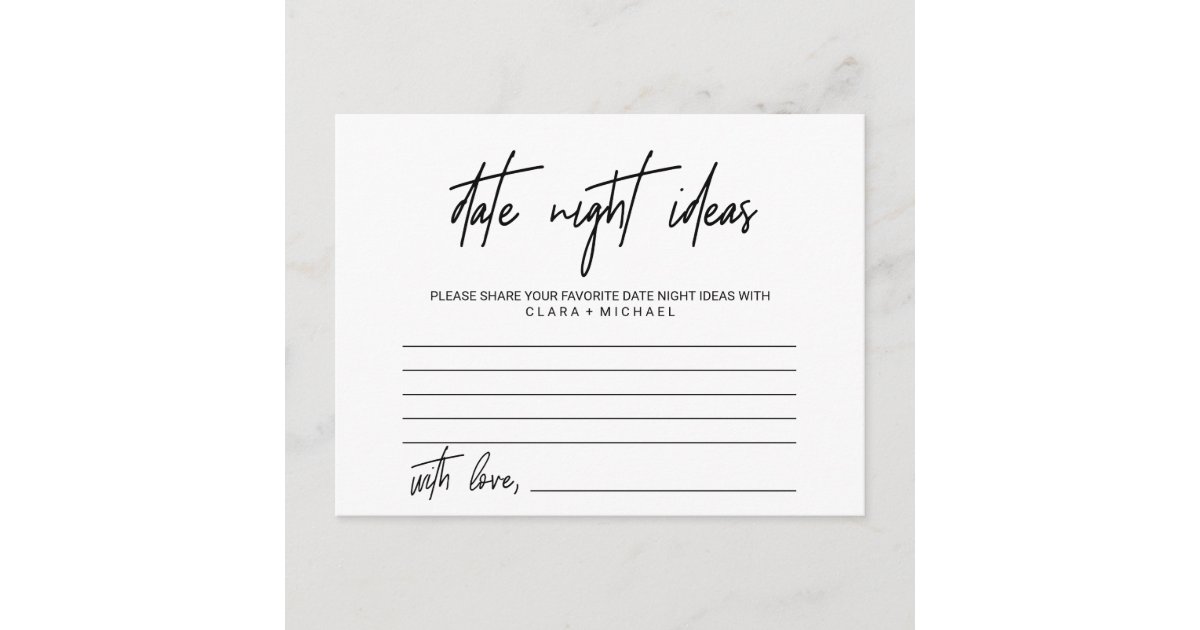 date night ideas
PLEASE SHARE YOUR FAVORITE DATE NIGHT IDEAS WITH
CLARA + MICHAEL
with love,